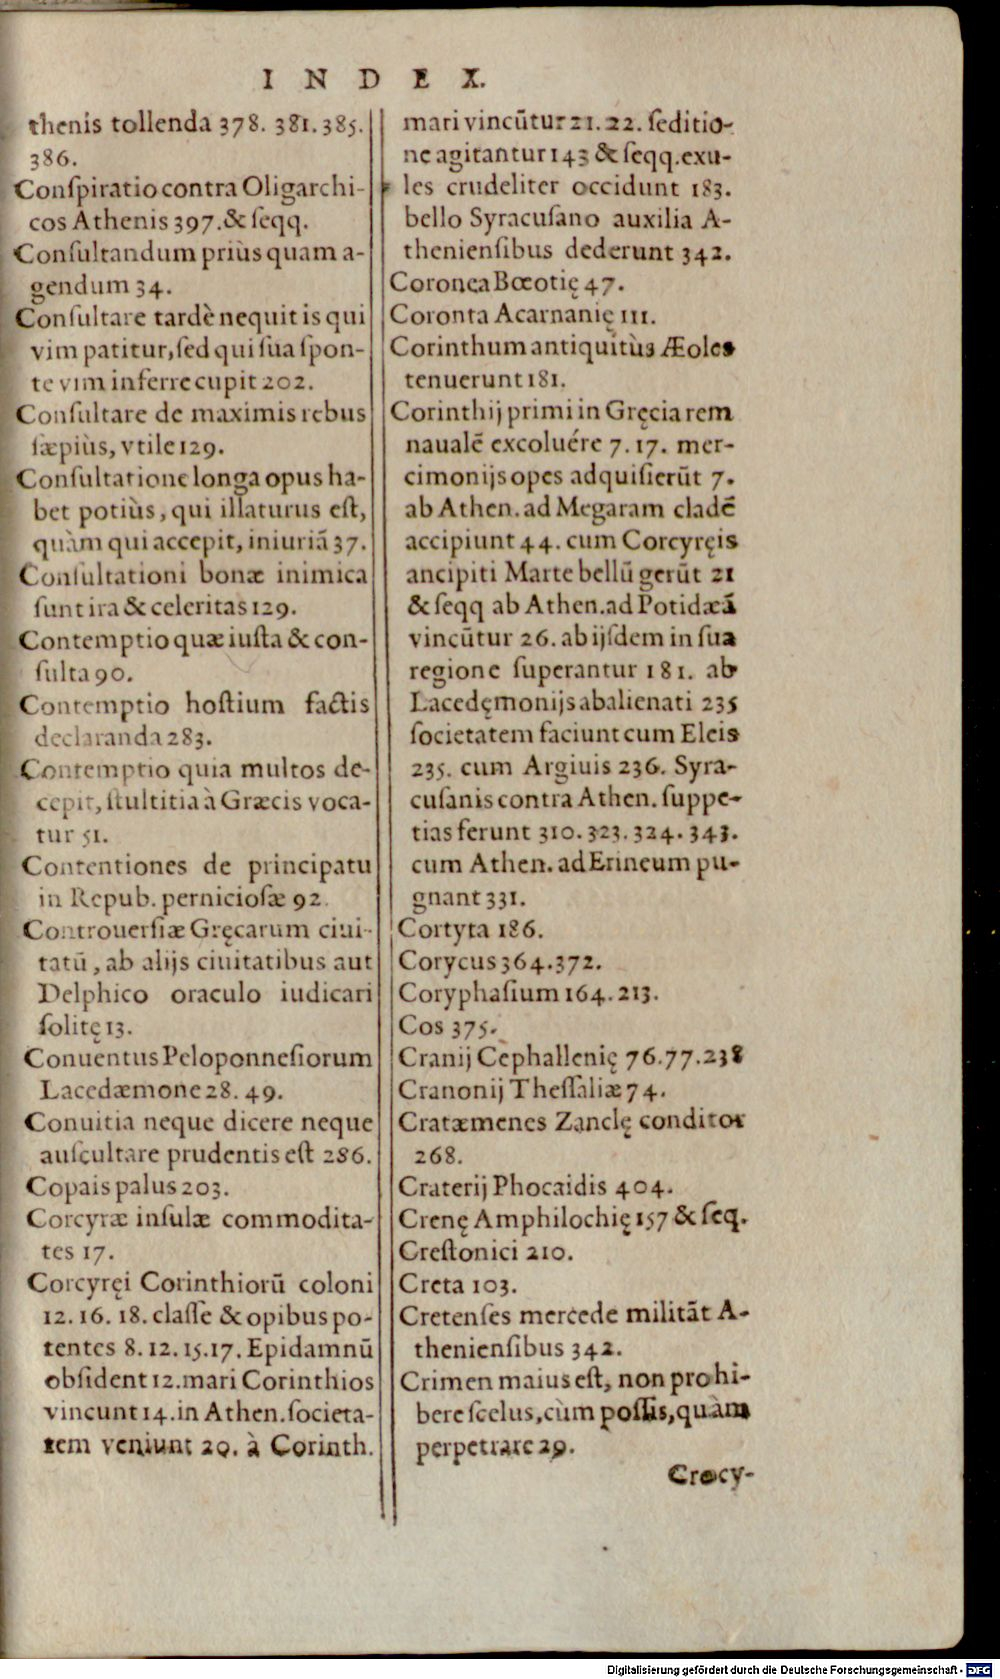 INDEX.
thenis tollenda 378. 381. 385.
386.
Conſpiratio contra Oligarchi-
cos Athenis 397. & ſeqq.
Conſultandum priùs quam a-
gendum 34.
Conſultare tardè nequit is qui
vim patitur, ſed qui ſua ſpon-
te vim inferre cupit 202.
Conſultare de maximis rebus
ſæpiùs, vtile 129.
Conſultatione longa opus ha-
bet potiùs, qui illaturus eſt,
quàm qui accepit, iniuriā 37.
Conſultationi bonæ inimica
ſunt ira & celeritas 129.
Contemptio quæ iuſta & con-
ſulta 90.
Contemptio hoſtium factis
declaranda 283.
Contemptio quia multos de-
cepit, ſtultitia à Græcis voca-
tur 51.
Contentiones de principatu
in Repub. pernicioſæ 92.
Controuerſiæ Gręcarum ciui-
tatū, ab alijs ciuitatibus aut
Delphico oraculo iudicari
ſolitę 13.
Conuentus Peloponneſiorum
Lacedæmone 28. 49.
Conuitia neque dicere neque
auſcultare prudentis eſt 286.
Copais palus 203.
Corcyræ inſulæ commodita-
tes 17.
Corcyręi Corinthiorū coloni
12. 16. 18. claſſe & opibus po-
tentes 8. 12. 15. 17. Epidamnū
obſident 12. mari Corinthios
vincunt 14. in Athen. ſocieta-
tem veniunt 20. à Corinth.
mari vincūtur 21. 22. ſeditio-
ne agitantur 143 & ſeqq. exu-
les crudeliter occidunt 183.
bello Syracuſano auxilia A-
thenienſibus dederunt 342.
Coronea Bœotię 47.
Coronta Acarnanię 111.
Corinthum antiquitùs Æoles
tenuerunt 181.
Corinthij primi in Gręcia rem
navalē excoluére 7. 17. mer-
cimonijs opes adquiſierūt 7.
ab Athen. ad Megaram cladē
accipiunt 44. cum Corcyręis
ancipiti Marte bellū gerūt 21
& ſeqq ab Athen. ad Potidæā
vincūtur 26. ab ijſdem in ſua
regione ſuperantur 181. ab
Lacedęmonijs abalienati 235
ſocietatem faciunt cum Eleis
235. cum Argiuis 236. Syra-
cuſanis contra Athen. ſuppe-
tias ferunt 310. 323. 324. 343.
cum Athen. ad Erineum pu-
gnant 331.
Cortyta 186.
Corycus 364. 372.
Coryphaſium 164. 213.
Cos 375.
Cranij Cephallenię 76. 77. 238
Cranonij Theſſaliæ 74.
Cratæmenes Zanclę conditor
268.
Craterij Phocaidis 404.
Crenę Amphilochię 157 & ſeq.
Creſtonici 210.
Creta 103.
Cretenſes mercede militāt A-
thenienſibus 342.
Crimen maius eſt, non prohi-
bere ſcelus, cùm poſſis, quàm
perpetrare 29.
Crocy-
Digitalisierung gefördert durch die Deutsche Forschungsgemeinschaft - DFG